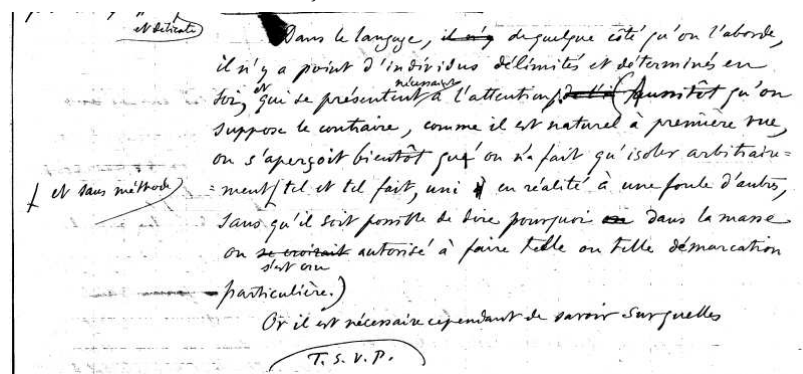 et délicate
Dans le langage, il n'y de quelque côté qu'on l'aborde,
il n'y a point d'individus délimités et déterminés en
soi, et qui se présentent nécessairt à l'attention. (Aussitôt qu'on
suppose le contraire, comme il est naturel à première vue,
on s'aperçoit bientôt qu'on n'a fait qu'isoler arbitraire=
et sans méthode
=ment tel et tel fait, uni en réalité à une foule d'autres,
sans qu'il soit possible de dire pourquoi dans la masse
on se croirait autorisé à faire telle ou telle démarcation
s'est cru
particulière.)
Or il est nécessaire cependant de savoir sur quelles
T.S.V.P.